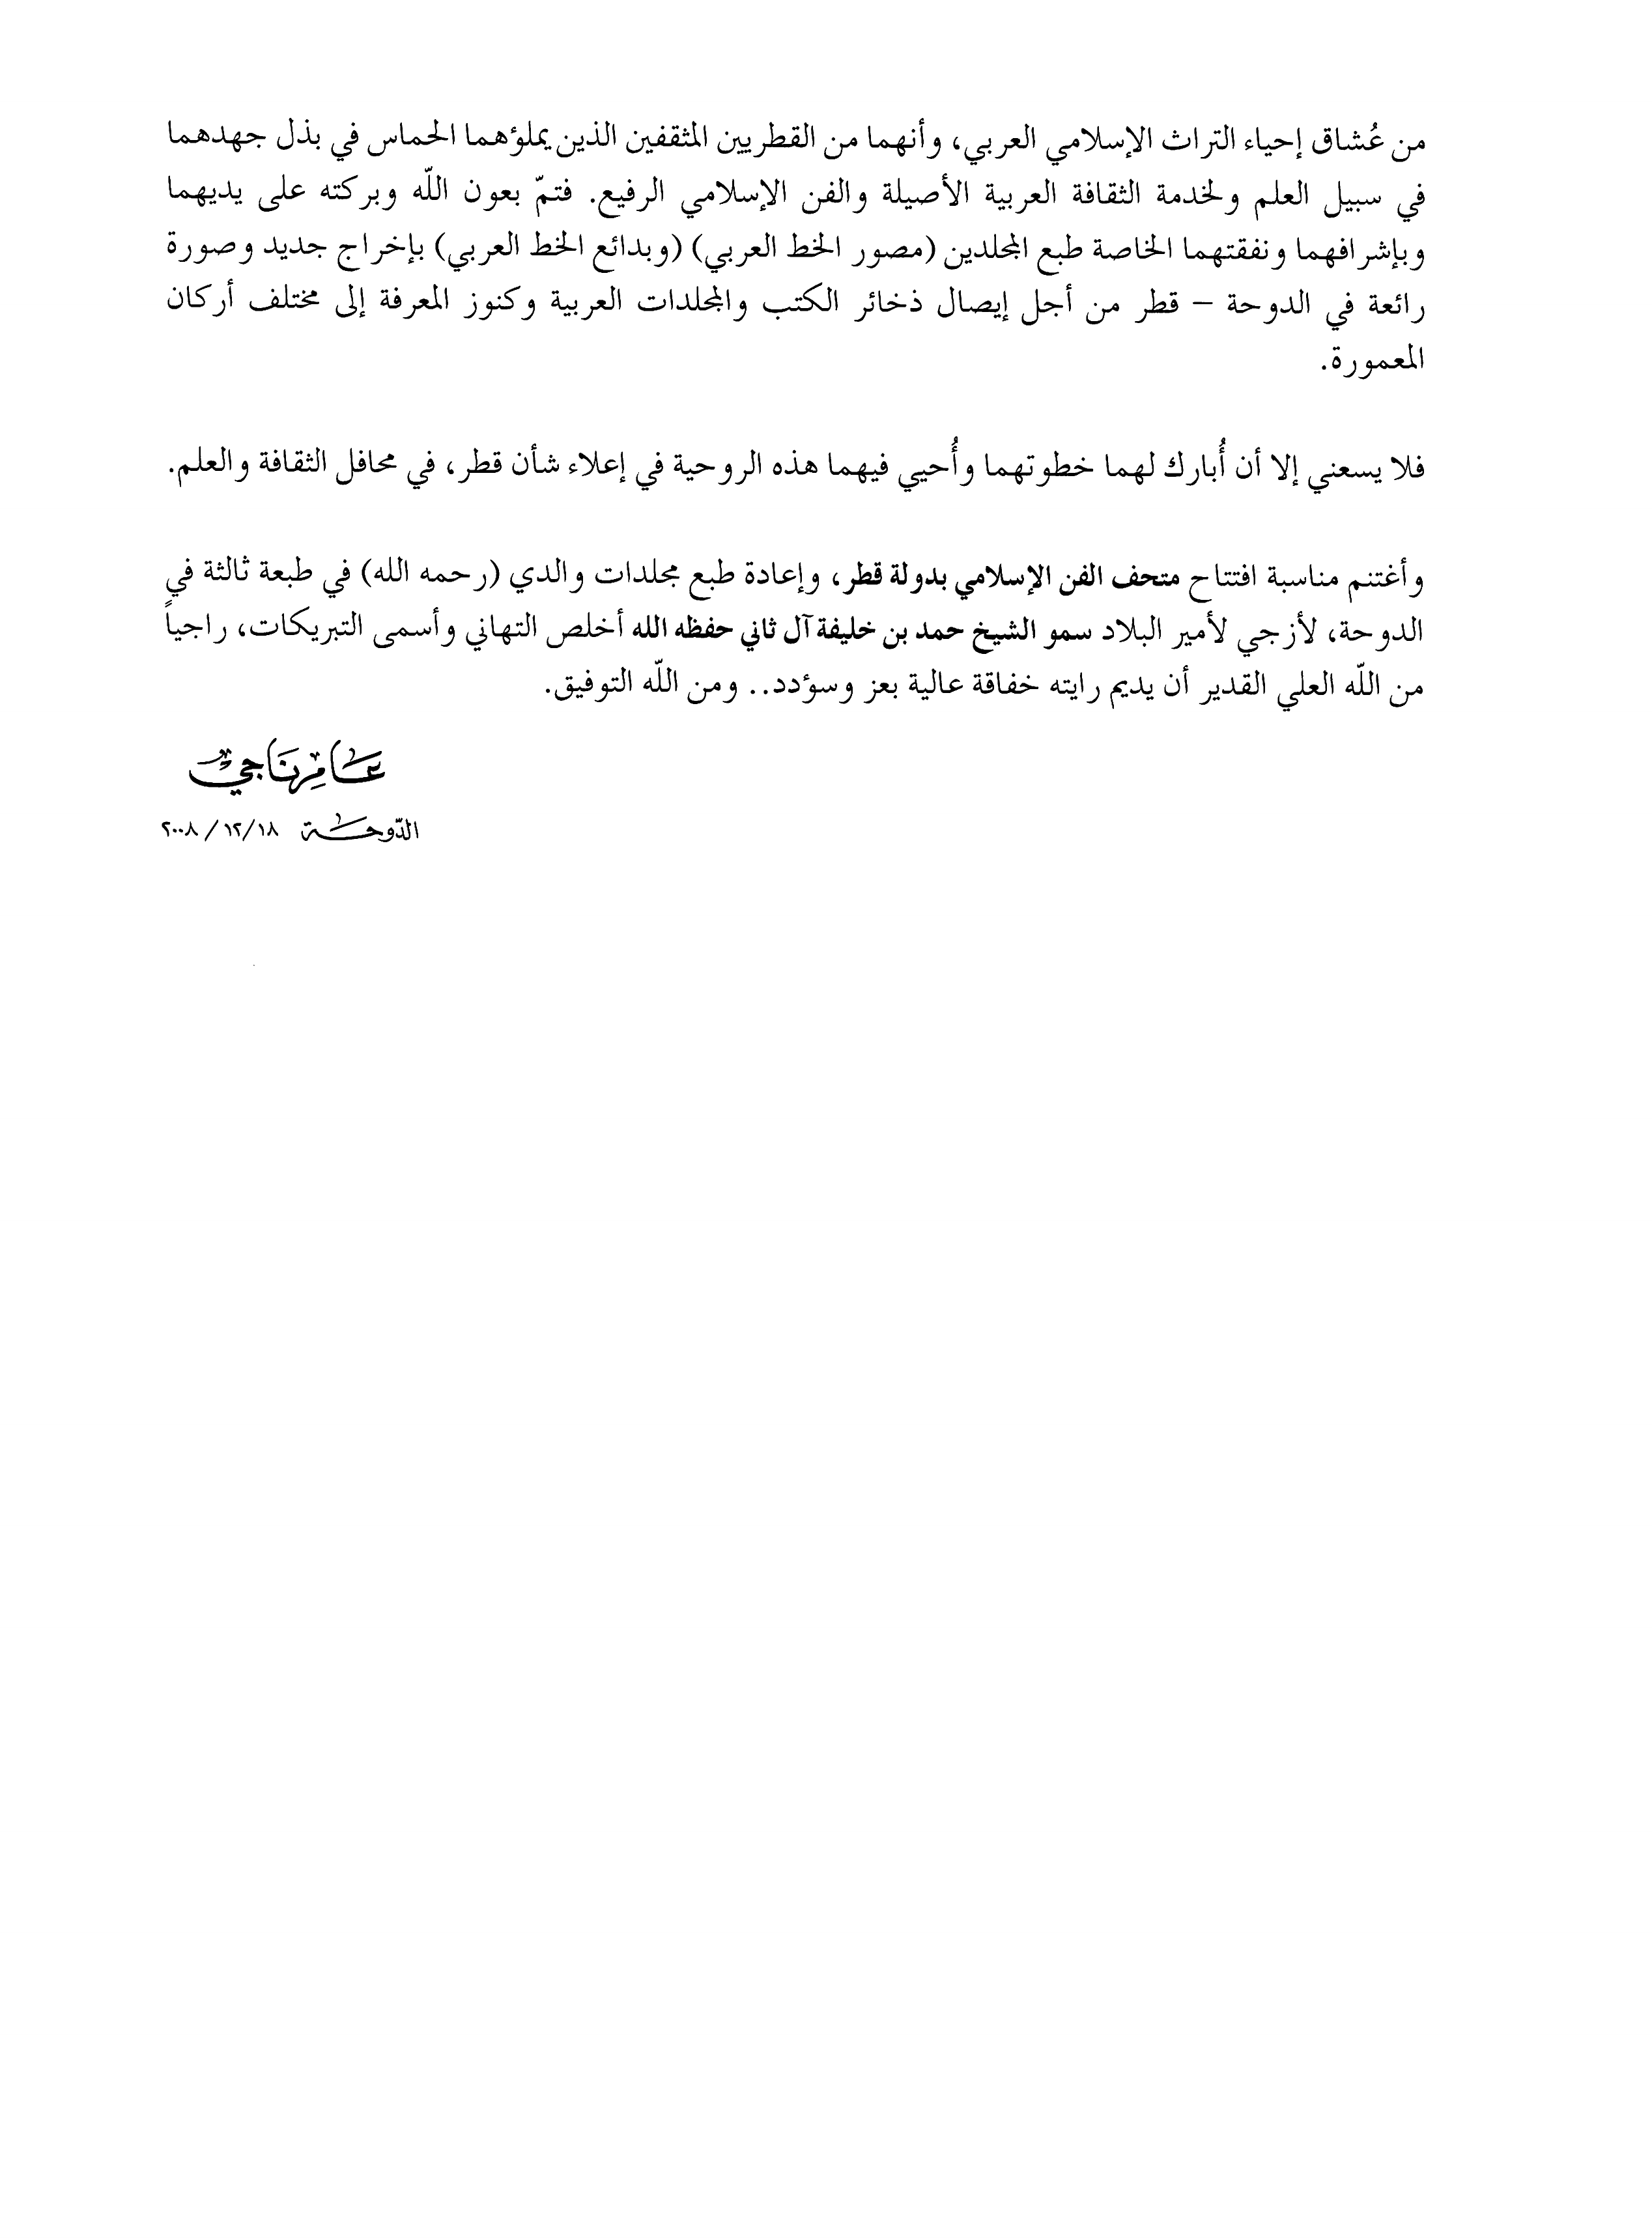 من عُشاق إحياء التراث الإسلامي العربي، وأنهما من القطريين المثقفين الذين يملؤهما الحماس في بذل جهدهما
في سبيل العلم ولخدمة الثقافة العربية الأصيلة والفن الإسلامي الرفيع. فتمّ بعون اللّه وبركته على يديهما
وبإشرافهما ونفقتهما الخاصة طبع المجلدين (مصور الخط العربي) (وبدائع الخط العربي) بإخراج جديد وصورة
رائعة في الدوحة – قطر من أجل إيصال ذخائر الكتب والمجلدات العربية وكنوز المعرفة إلى مختلف أركان
المعمورة.
فلا يسعني إلا أن أُبارك لهما خطوتهما وأُحيي فيهما هذه الروحية في إعلاء شأن قطر، في محافل الثقافة والعلم.
وأغتنم مناسبة افتتاح متحف الفن الإسلامي بدولة قطر، وإعادة طبع مجلدات والدي (رحمه الله) في طبعة ثالثة في
الدوحة، لأزجي لأمير البلاد سمو الشيخ حمد بن خليفة آل ثاني حفظه الله أخلص التهاني وأسمى التبريكات، راجياً
من اللّه العلي القدير أن يديم رايته خفاقة عالية بعز وسؤدد.. ومن اللّه التوفيق.
عَامِر نَاجي
الدّوحَة ١٨/١٢/٢٠٠٨